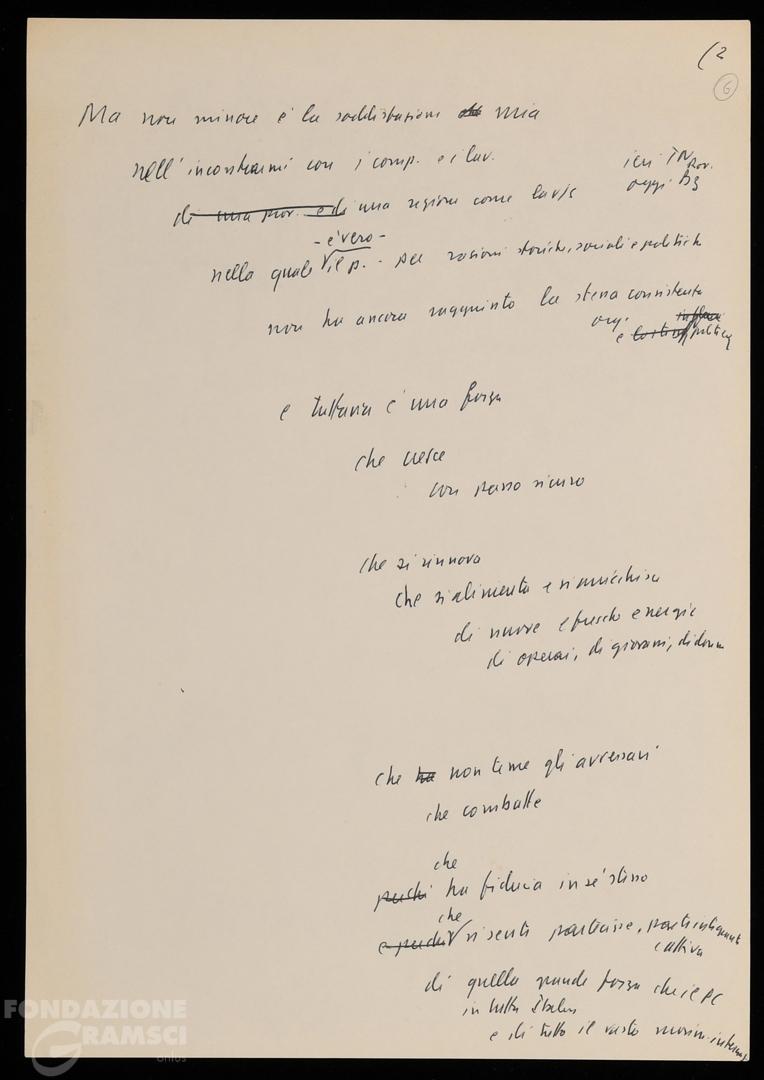 (2
6
Ma non minore è la soddisfazione mia
nell'incontrarmi con i comp. e i lav.
ieri TN
oggi BS
di una prov. e di una regione come la
- è vero -
nella quale il p. - per ragioni storiche, sociali e politiche
non ha ancora raggiunto la stessa consistenza
org.
e politica
e tuttavia è una forza
che cresce
con passo sicuro
che si rinnova
che si alimenta e si arricchisce
di nuove e fresche energie
di operai, di giovani, di donne
che ha non teme gli avversari
che combatte
che
perché ha fiducia in sé stesso
che
e perché si sente partecipe, parte integrante
e attiva
di quella grande forza che è il PC
in tutta Italia
e di tutto il vasto movim. internaz.
FONDAZIONE
GRAMSCI
onlus